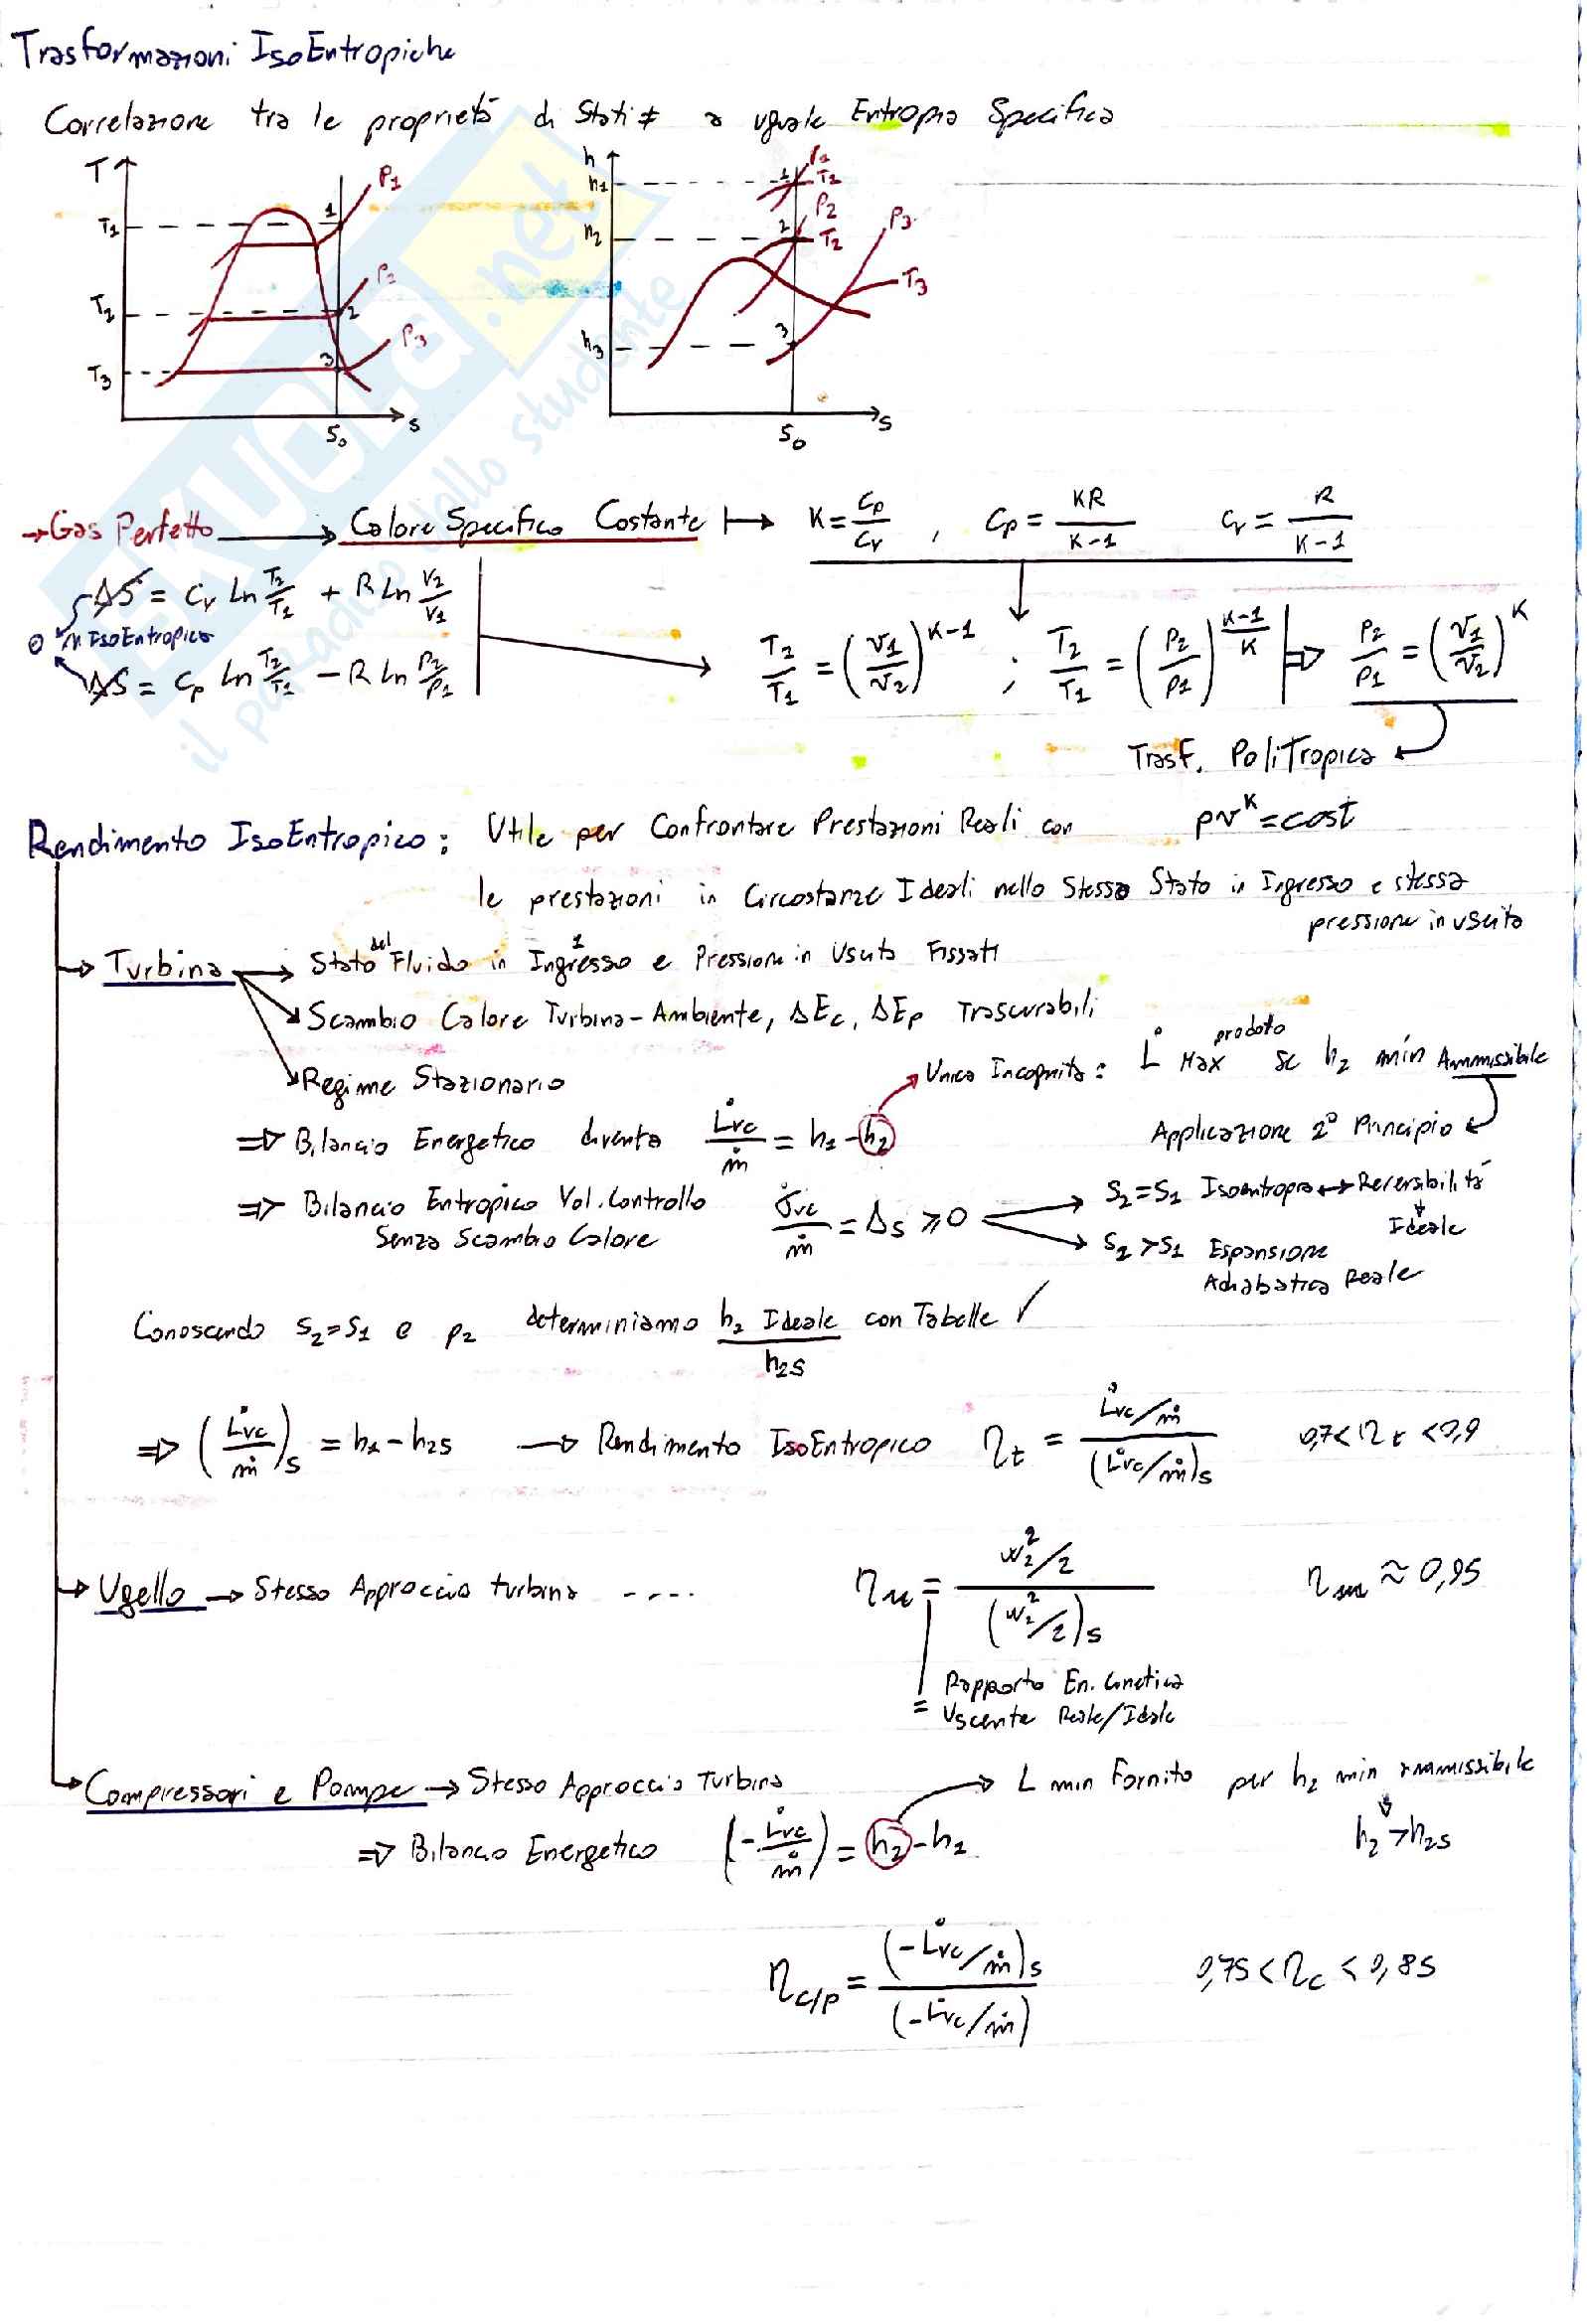 Trasformazioni IsoEntropiche
Correlazione tra le proprietà di Stati ≠ a uguale Entropia Specifica
T T1 T2 T3 P1 P2 P3 1 2 3 S0 s
h h1 h2 h3 P1 T1 P2 T2 P3 T3 1 2 3 S0 s
→ Gas Perfetto → Calore Specifico Costante ↦ K = Cp/Cv , Cp = KR/(K-1) Cv = R/(K-1)
ΔS = Cv Ln T2/T1 + R Ln V2/V1
0 in IsoEntropica
ΔS = Cp Ln T2/T1 − R Ln P2/P1
T2/T1 = (v1/v2)^(K-1) ; T2/T1 = (P2/P1)^((K-1)/K) ⇒ P2/P1 = (v1/v2)^K
Trasf. PoliTropica
pv^K = cost
Rendimento IsoEntropico: Utile per Confrontare Prestazioni Reali con
le prestazioni in Circostanze Ideali nello Stesso Stato in Ingresso e stessa
pressione in uscita
→ Turbina → Stato del Fluido in Ingresso 1 e Pressione in Uscita Fissati
Scambio Calore Turbina-Ambiente, ΔEc, ΔEp Trascurabili
Regime Stazionario
Unica Incognita: L̇ Max prodotto se h2 min Ammissibile
Applicazione 2° Principio
⇒ Bilancio Energetico diventa L̇vc/ṁ = h1 - h2
⇒ Bilancio Entropico Vol. Controllo
Senza Scambio Calore
σ̇vc/ṁ = Δs ≥ 0
S2 = S1 Isoentropia ↔ Reversibilità
Ideale
S2 > S1 Espansione
Adiabatica Reale
Conoscendo S2 = S1 e p2 determiniamo h2 Ideale con Tabelle ✓
h2s
⇒ (L̇vc/ṁ)s = h1 - h2s → Rendimento IsoEntropico ηt = (L̇vc/ṁ)/(L̇vc/ṁ)s 0,7 < ηt < 0,9
→ Ugello → Stesso Approccio turbina .... ηu = (w2²/2)/(w2²/2)s ηu ≈ 0,95
= Rapporto En. Cinetica
Uscente Reale/Ideale
→ Compressori e Pompe → Stesso Approccio Turbina
L min Fornito per h2 min ammissibile
h2 > h2s
⇒ Bilancio Energetico (-L̇vc/ṁ) = h2 - h1
ηc/p = (-L̇vc/ṁ)s/(-L̇vc/ṁ) 0,75 < ηc < 0,85
SKUOLA.net
il paradiso dello studente